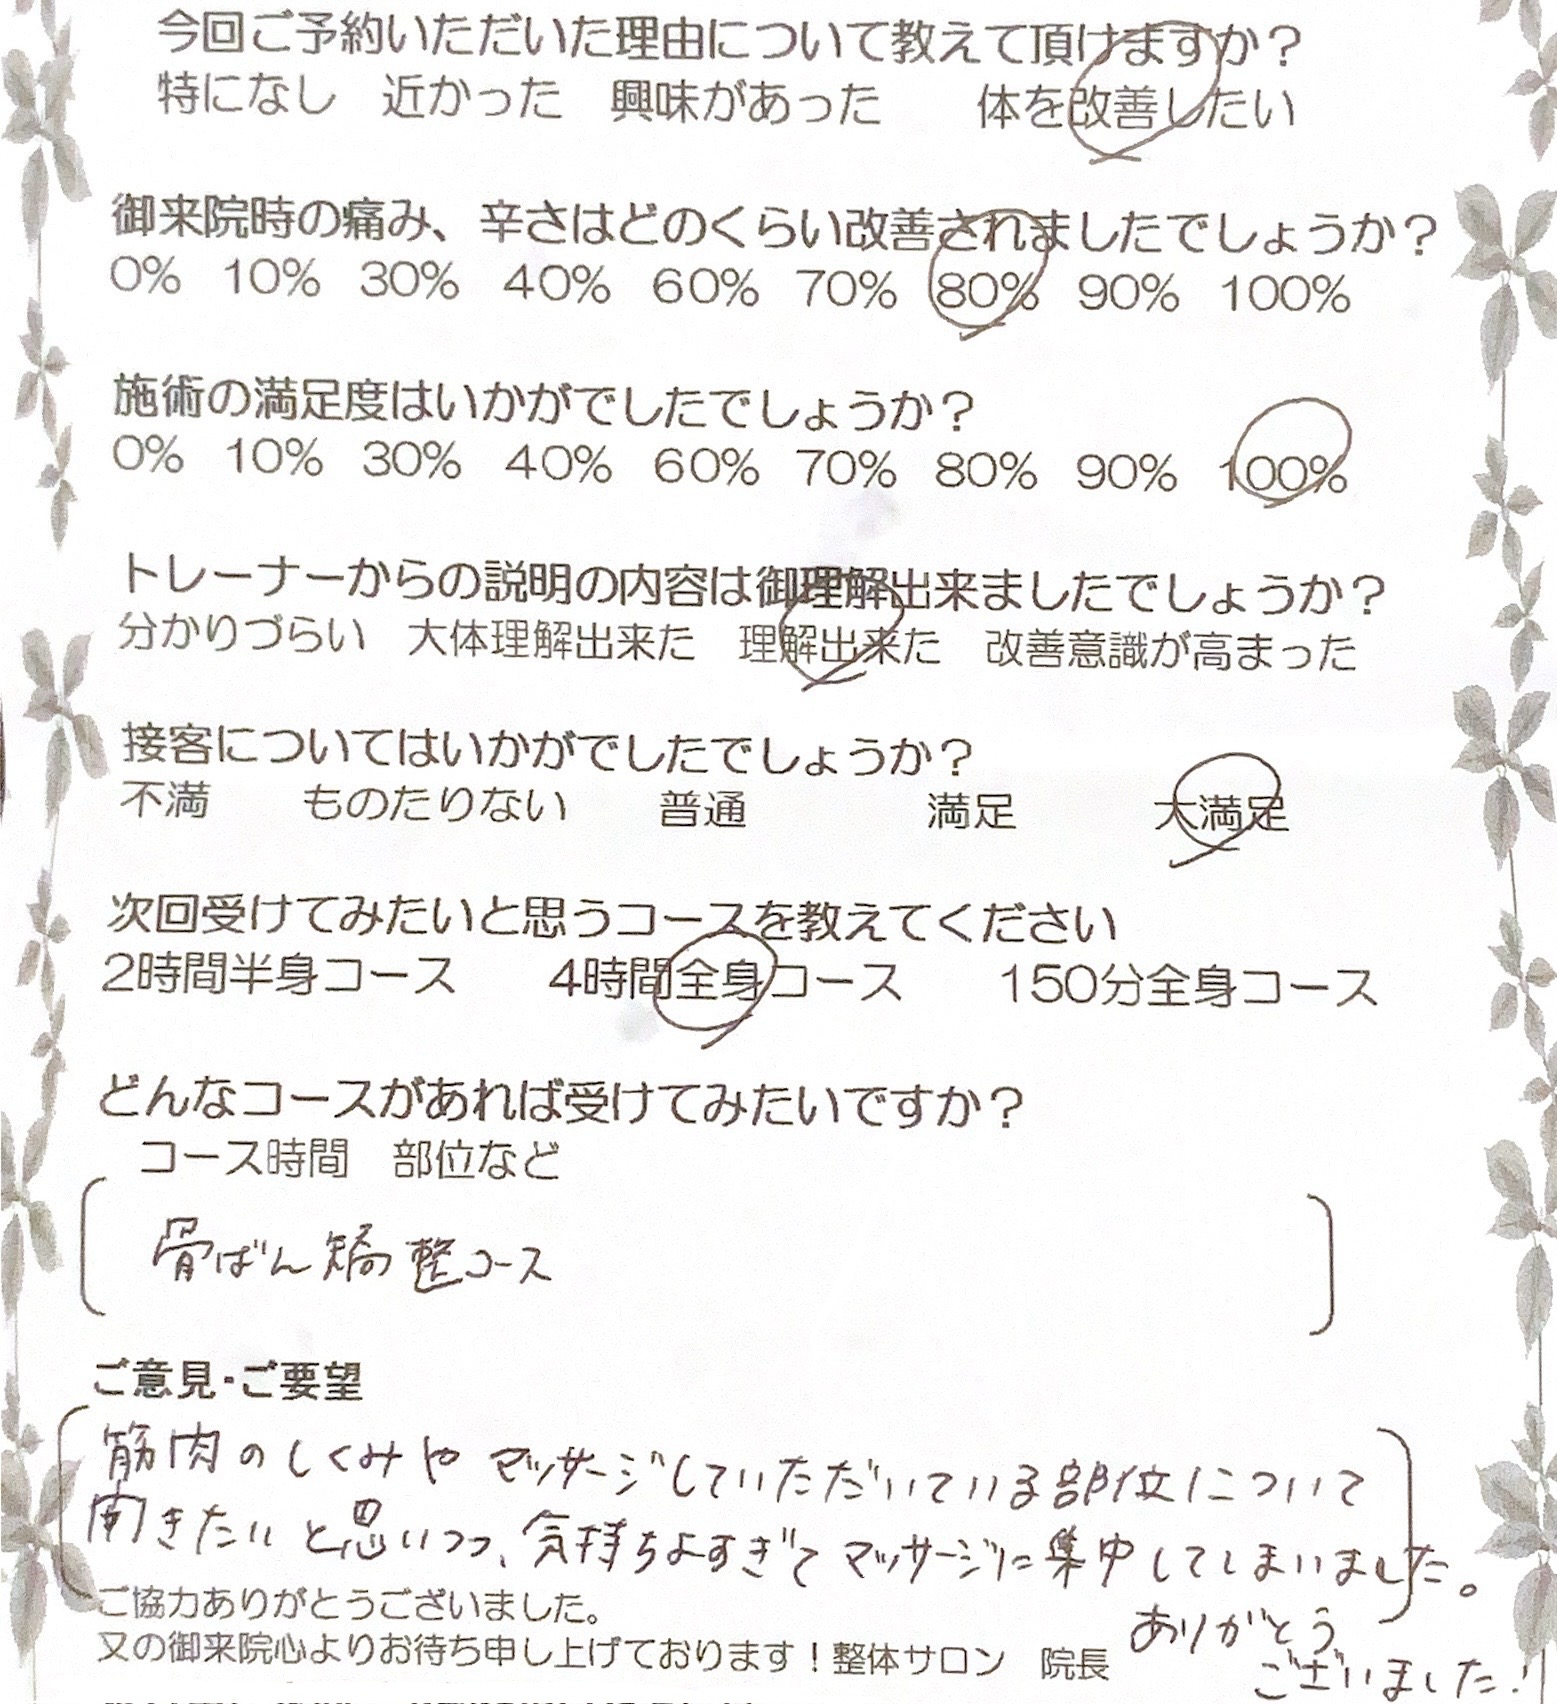 今回ご予約いただいた理由について教えて頂けますか？
特になし 近かった 興味があった 体を改善したい
御来院時の痛み、辛さはどのくらい改善されましたでしょうか？
0% 10% 30% 40% 60% 70% 80% 90% 100%
施術の満足度はいかがでしたでしょうか？
0% 10% 30% 40% 60% 70% 80% 90% 100%
トレーナーからの説明の内容は御理解出来ましたでしょうか？
分かりづらい 大体理解出来た 理解出来た 改善意識が高まった
接客についてはいかがでしたでしょうか？
不満 ものたりない 普通 満足 大満足
次回受けてみたいと思うコースを教えてください
2時間半身コース 4時間全身コース 150分全身コース
どんなコースがあれば受けてみたいですか？
コース時間 部位など
骨ばん矯整コース
ご意見・ご要望
筋肉のしくみやマッサージしていただいている部位について
聞きたいと思いつつ、気持ちよすぎてマッサージに集中してしまいました。
ご協力ありがとうございました。
ありがとう
又の御来院心よりお待ち申し上げております！整体サロン 院長
ございました！